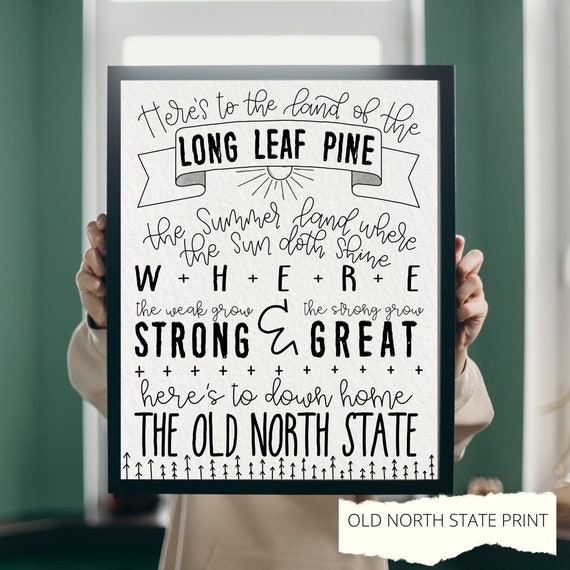 Here's to the land of the
LONG LEAF PINE
the Summer land where
the Sun doth Shine
W + H + E + R + E
the weak grow & the strong grow
STRONG GREAT
here's to down home
THE OLD NORTH STATE
OLD NORTH STATE PRINT